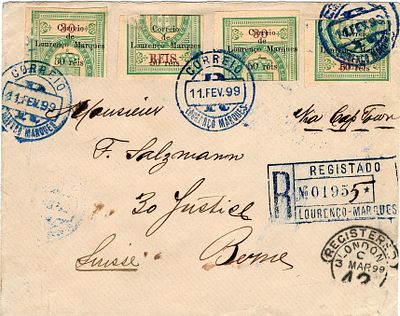 Correio
de
Lourenço Marques
50 réis
Correio
de
Lourenço Marques
REIS
50 réis
Correio
de
Lourenço Marques
50 réis
Correio
de
Lourenço Marques
50 réis
CORREIO
11.FEV.99
LOURENÇO MARQUES
CORREIO
R
11.FEV.99
LOURENÇO MARQUES
11.FEV.99
Monsieur
Via Cap Town
F. Salzmann
30 Justice
Berne
Suisse
REGISTADO
R No 01955
LOURENÇO-MARQUES
REGISTERED
LONDON
C
MAR 99